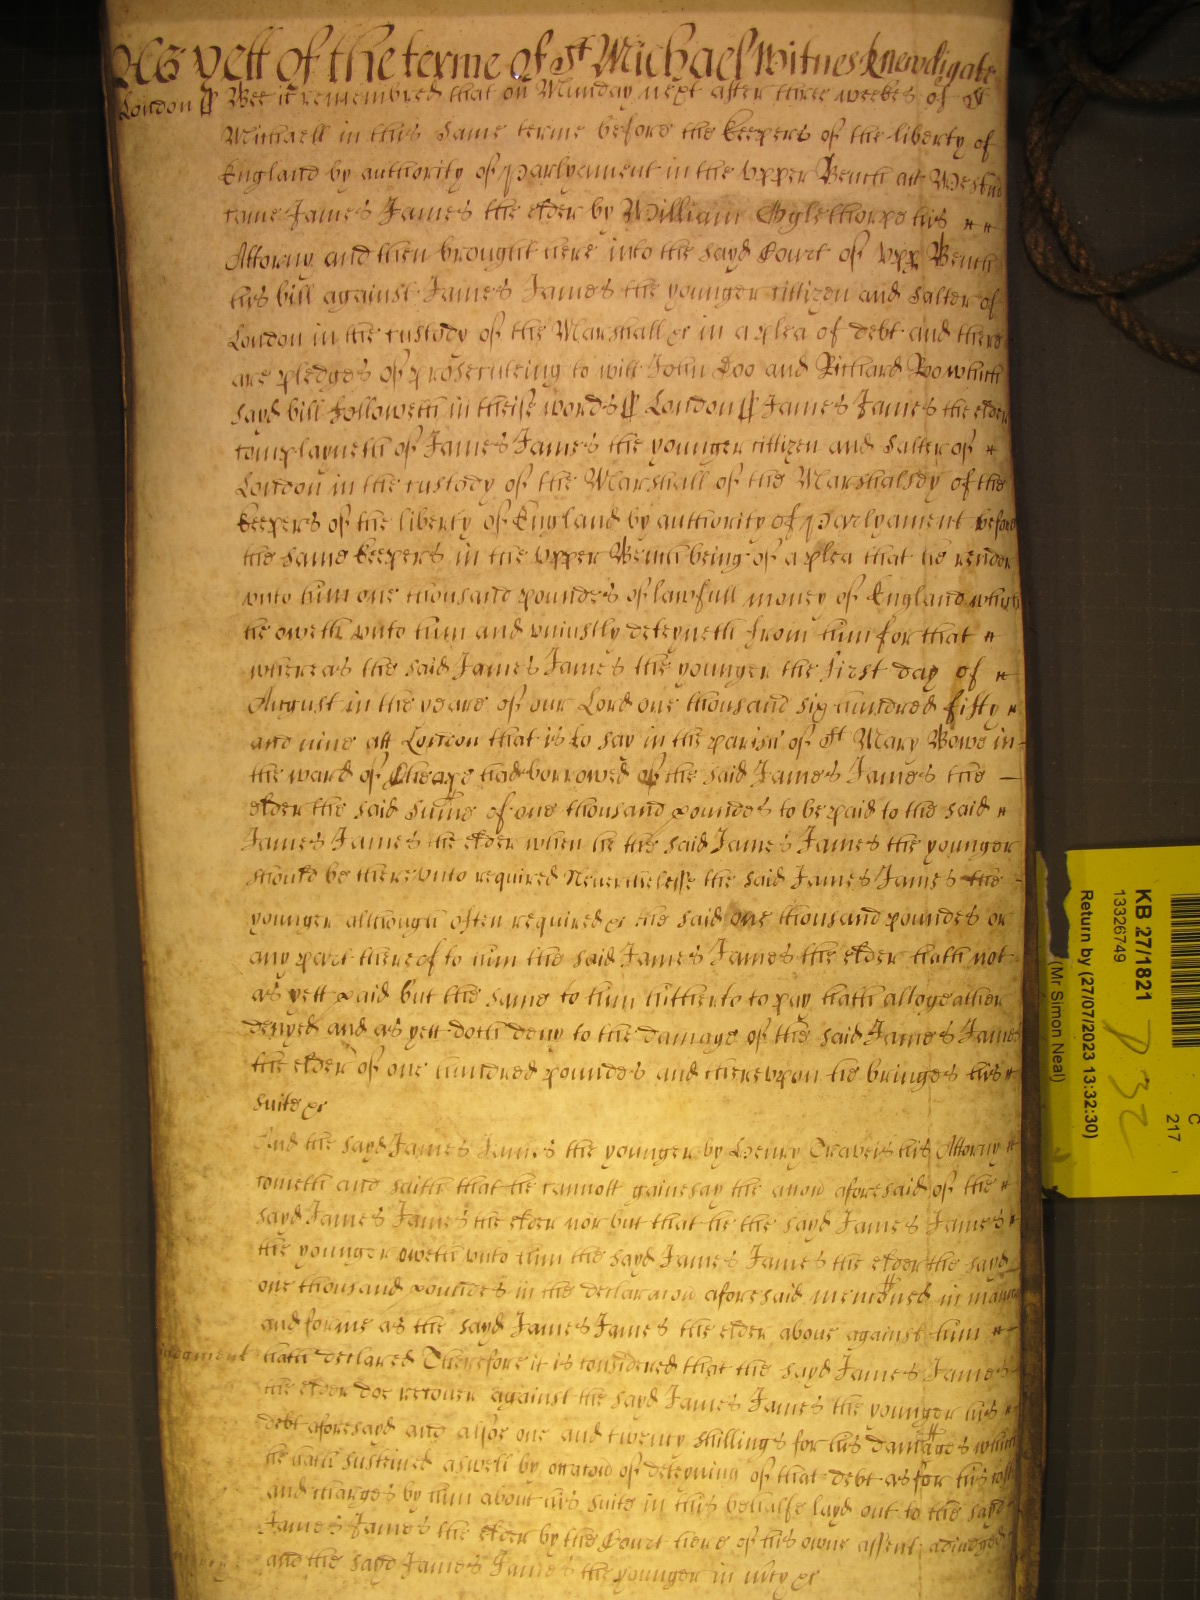 As yett of the terme of St Michael Witnes Knewdigate
London ss Bee it remembred that on Munday next after three weekes of St
Michaell in this same terme before the keepers of the liberty of
England by authority of Parlyament in the vpper Bench att Westm
came James James the elder by William Oglethorpe his
Attorny and then brought here into the sayd Court of vpp Bench
his bill against James James the younger cittizen and salter of
London in the custody of the Marshall &c in a plea of debt and there
are pledges of prosecuteing to witt John Doo and Richard Roo which
sayd bill followeth in theise words ss London ss James James the elder
complayneth of James James the younger cittizen and salter of
London in the custody of the Marshall of the Marshalsey of the
keepers of the liberty of England by authority of Parlyament before
the same keepers in the vpper Bench being of a plea that he render
vnto him one thousand poundes of lawfull money of England which
he oweth vnto him and vniustly deteyneth from him for that
whereas the said James James the younger the first day of
August in the yeare of our Lord one thousand six hundred fifty
and nine att London that is to say in the parish of St Mary Bowe in
the ward of Cheape had borrowed of the said James James the
elder the said sume of one thousand poundes to be paid to the said
James James the elder when he the said James James the younger
should be therevnto required Neverthelesse the said James James the
younger although often required &c the said one thousand poundes or
any part thereof to him the said James James the elder hath not
as yett paid but the same to him hitherto to pay hath altogeather
denyed and as yett doth deny to the damage of the said James James
the elder of one hundred poundes and therevpon he bringes his
suite &c
And the sayd James James the younger by Henry Traveis his Attorny
cometh and saith that he cannott gainesay the accion aforesaid of the
sayd James James the elder nor but that he the sayd James James
the younger oweth vnto him the sayd James James the elder the sayd
one thousand poundes in the declaracion aforesaid mencioned in manner
and forme as the sayd James James the elder above against him
Judgment hath declared Therefore it is considered that the sayd James James
the elder doe recouer against the sayd James James the younger his
debt aforesayd and alsoe one and twenty shillings for his damages which
he hath susteined aswell by occacion of deteyning of that debt as for his cost
and charges by him about his suite in this behalfe layd out to the sayd
James James the elder by the Court here of his owne assent adiudged
and the sayd James James the younger in mcy &c
KB 27/1821
13326749
Return by (27/07/2023 13:32:30)
(Mr Simon Neal)
C
217
P 32